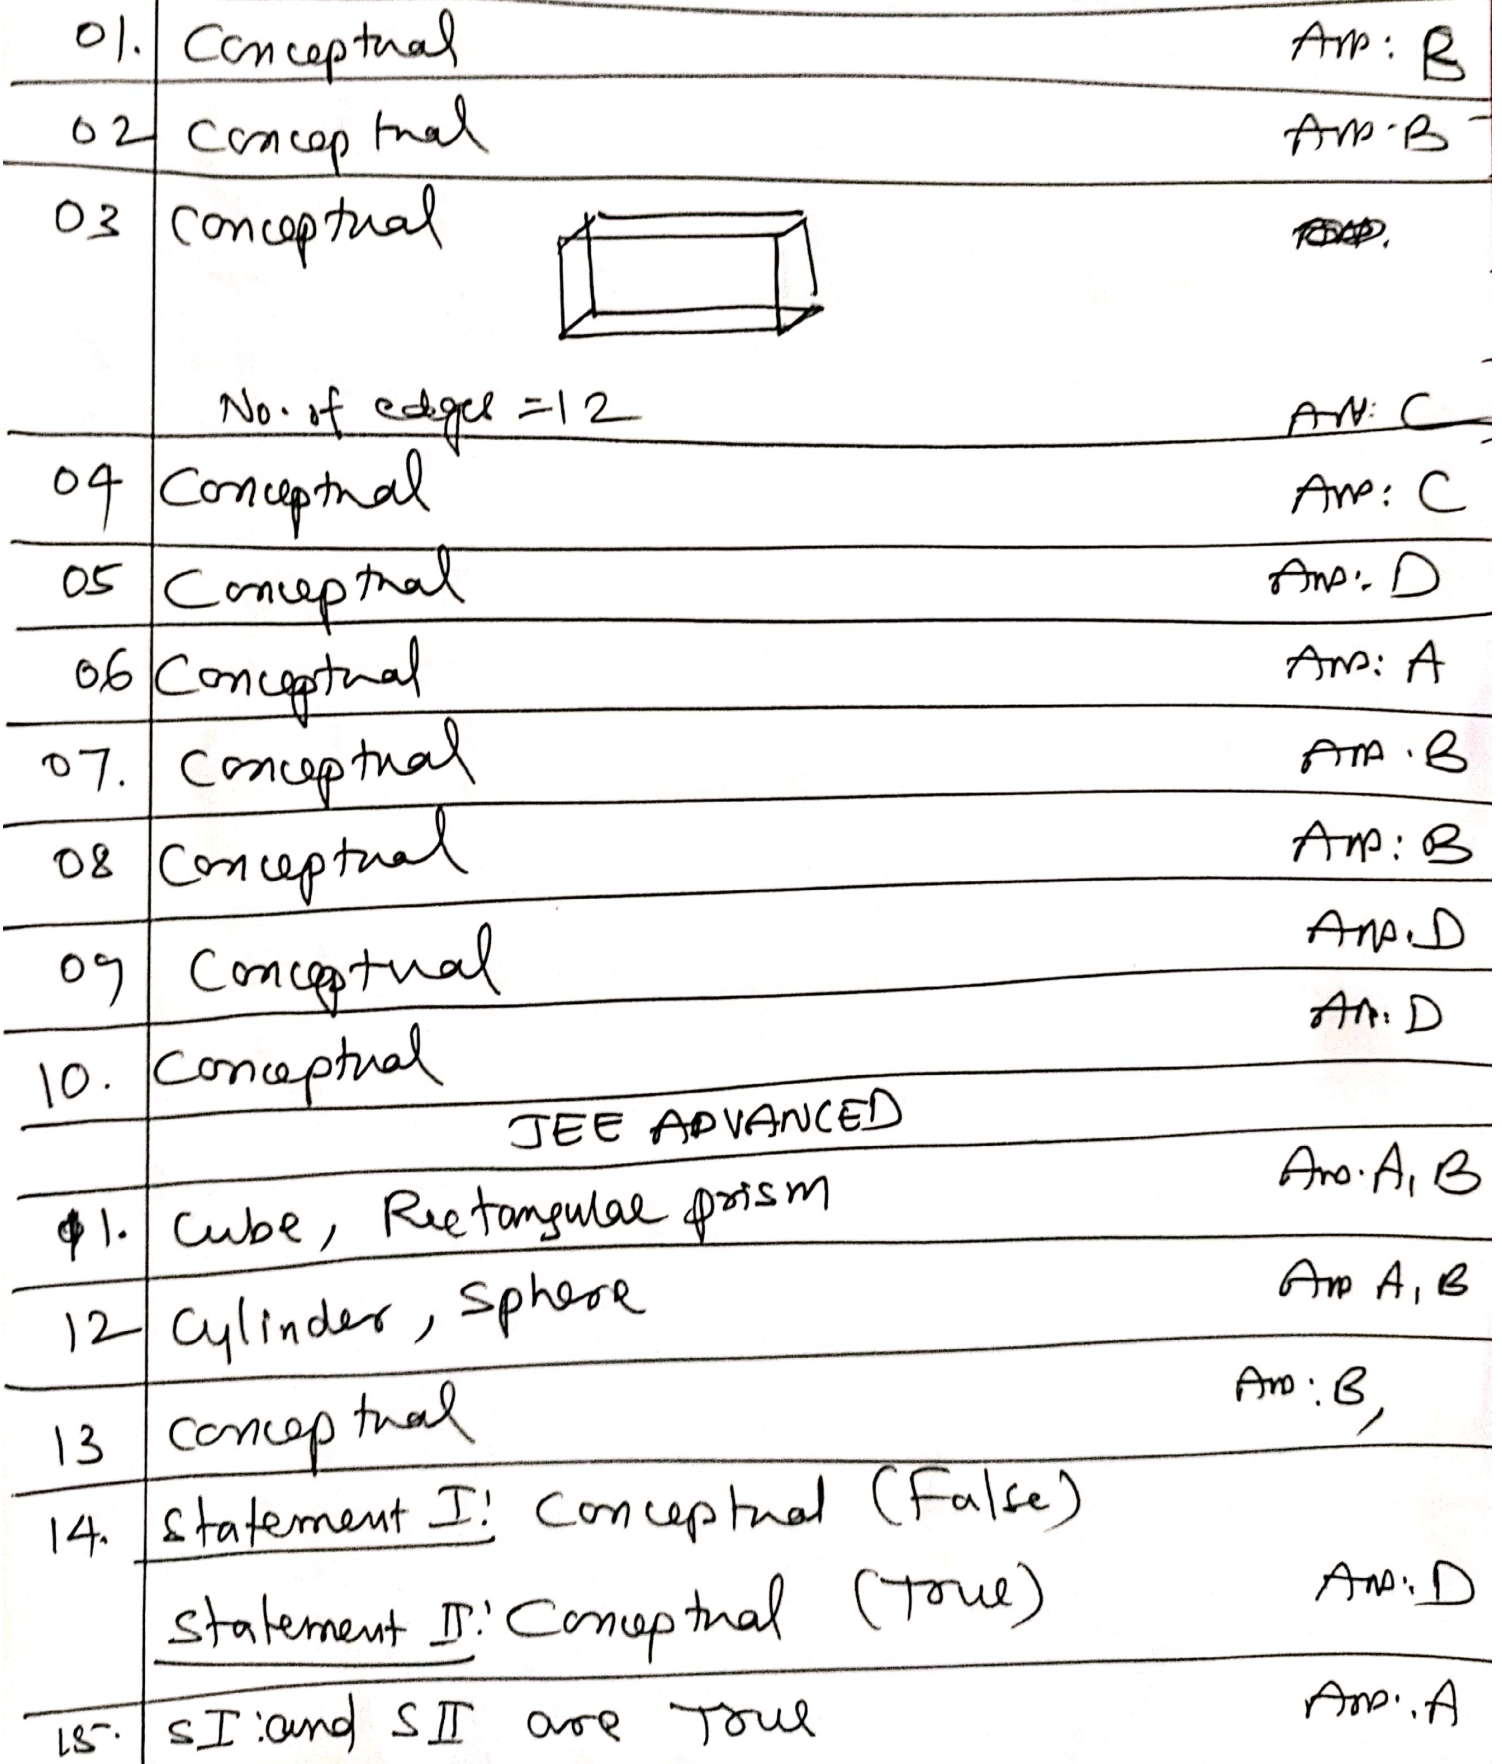 01. Conceptual Ans: B
02 Conceptual Ans: B
03 Conceptual
No. of edges = 12 Ans: C
04 Conceptual Ans: C
05 Conceptual Ans: D
06 Conceptual Ans: A
07. Conceptual Ans: B
08 Conceptual Ans: B
09 Conceptual Ans. D
10. Conceptual Ans: D
JEE ADVANCED
11. Cube, Rectangular prism Ans. A, B
12 Cylinder, Sphere Ans A, B
13 Conceptual Ans: B,
14. Statement I: Conceptual (False)
Statement II: Conceptual (True) Ans: D
15. SI: and SII are True Ans: A